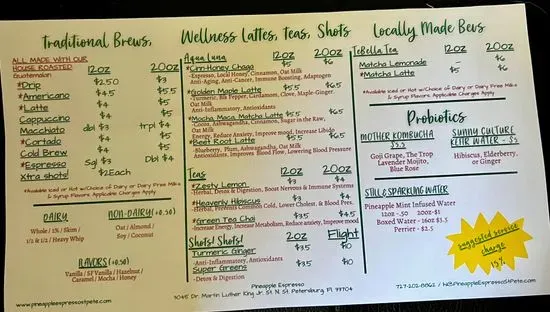 Traditional Brews,
Wellness Lattes, Teas, Shots
Locally Made Bevs
ALL MADE WITH OUR
HOUSE ROASTED
Guatemalan
12oz 20oz
*Drip $2.50 $3
*Americano $4.5 $5.5
*Latte $4 $5
Cappuccino $4 $5
Macchiato dbl $3 trpl $4
*Cortado $4
Cold Brew $4 $5
*Espresso Sgl $3 Dbl $4
Xtra shots! $2Each
*Available Iced or Hot w/Choice of Dairy or Dairy Free Milks
& Syrup Flavors Applicable Charges Apply
DAIRY
Whole / 2% / Skim /
1/2 & 1/2 / Heavy Whip
NON-DAIRY(+0.50)
Oat / Almond /
Soy / Coconut
FLAVORS (+0.50)
Vanilla / SF Vanilla / Hazelnut /
Caramel / Mocha / Honey
Aqua Luna 12oz 20oz
*Cinn-Honey Chaga $5 $6
-Espresso, Local Honey, Cinnamon, Oat Milk
Anti-Aging, Anti-Cancer, Immune Boosting, Adaptogen
*Golden Maple Latte $5.5 $6.5
-Turmeric, Blk Pepper, Cardamom, Clove, Maple-Ginger,
Oat Milk
Anti-Inflammatory, Antioxidants
*Mocha, Maca, Matcha Latte $5.5 $6.5
-Cocoa, Ashwagandha, Cinnamon, Sugar in the Raw,
Oat Milk
Energy, Reduce Anxiety, Improve mood, Increase Libido
*Beet Root Latte $5.5 $6.5
-Blueberry, Plum, Ashwagandha, Oat Milk
-Antioxidants, Improves Blood Flow, Lowering Blood Pressure
Teas
*Zesty Lemon $3 $4
-Herbal, Detox & Digestion, Boost Nervous & Immune Systems
*Heavenly Hibiscus $3 $4
-Herbal, Prevents Common Cold, Lower Cholest. & Blood Pres.
*Green Tea Chai $3.5 $4.5
-Increase Energy, Increase Metabolism, Reduce anxiety, Improve mood
Shots! Shots! 2oz Flight
Turmeric Ginger $3.5 $10
-Anti-Inflammatory, Antioxidants
Super Greens $3.5 $10
-Detox & Digestion
TeBella Tea 12oz 20oz
Matcha Lemonade - $6
*Matcha Latte $5 $6
*Available Iced or Hot w/Choice of Dairy or Dairy Free Milks
& Syrup Flavors Applicable Charges Apply
Probiotics
MOTHER KOMBUCHA
$5.5
Goji Grape, The Trop
Lavender Mojito,
Blue Rose
SUNNY CULTURE
KEFIR WATER - $5
Hibiscus, Elderberry,
or Ginger
STILL & SPARKLING WATER
Pineapple Mint Infused Water
12oz -.50 20oz-$1
Boxed Water - 16oz $3.5
Perrier - $2.5
suggested service
charge
15%
www.pineappleespressoStPete.com
Pineapple Espresso
1045 Dr. Martin Luther King Jr. St. N. St. Petersburg, Fl 33704